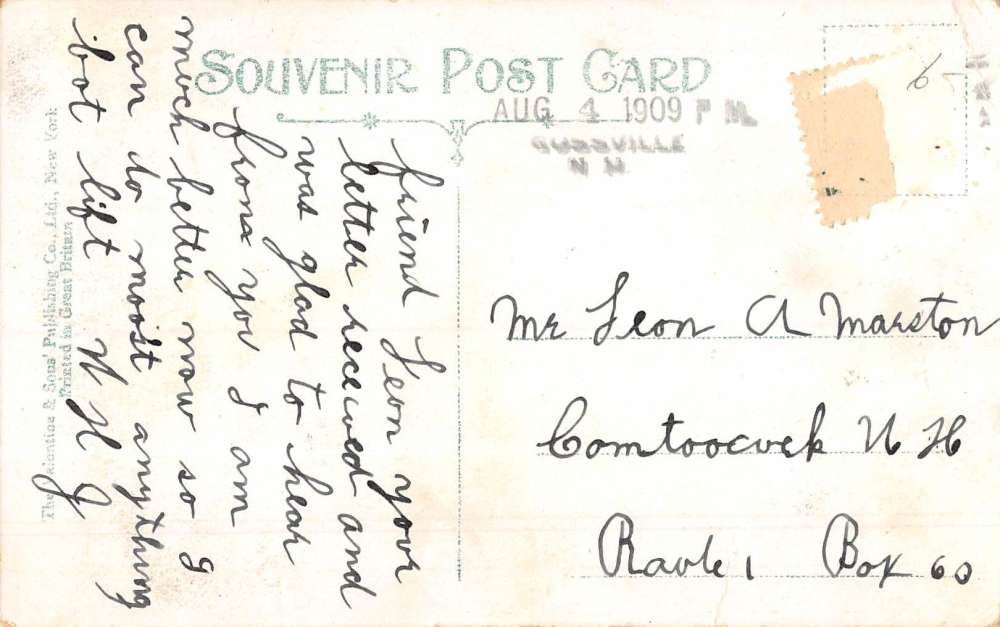 SOUVENIR POST CARD
AUG 4 1909 P M
N H
6
friend Leon your
letter received and
was glad to hear
from you I am
much better now so I
can do moost anything
bot lift W H J
Mr Leon A Marston
Comtoocvok N H
Raute 1 Box 60
The Valentine & Sons' Publishing Co., Ltd., New York
Printed in Great Britain